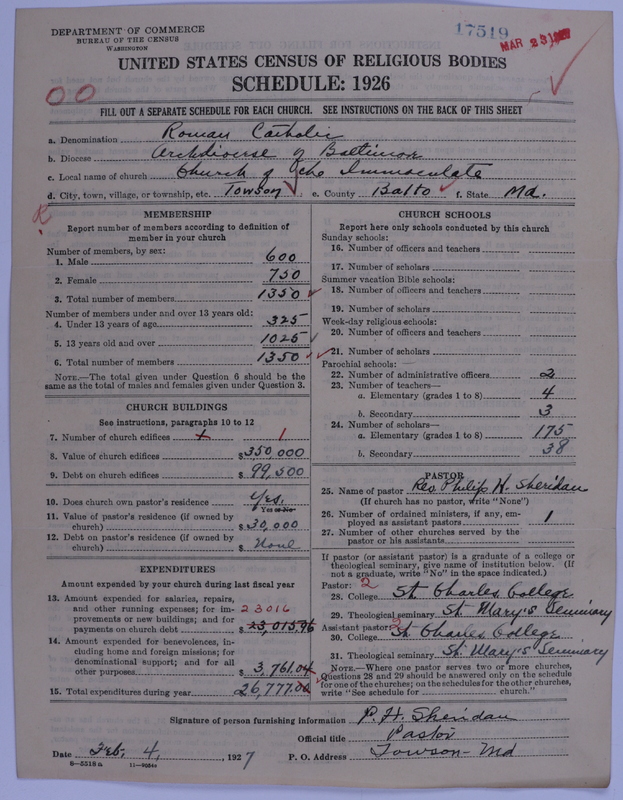 DEPARTMENT OF COMMERCE
BUREAU OF THE CENSUS
WASHINGTON
17519
MAR 23 1927
UNITED STATES CENSUS OF RELIGIOUS BODIES
SCHEDULE: 1926
FILL OUT A SEPARATE SCHEDULE FOR EACH CHURCH. SEE INSTRUCTIONS ON THE BACK OF THIS SHEET
a. Denomination Roman Catholic
b. Diocese Archdiocese of Baltimore
c. Local name of church Church of the Immaculate
d. City, town, village, or township, etc. Towson e. County Balto f. State Md.
MEMBERSHIP
Report number of members according to definition of
member in your church
Number of members, by sex:
1. Male 600
2. Female 750
3. Total number of members 1350
Number of members under and over 13 years old:
4. Under 13 years of age 325
5. 13 years old and over 1025
6. Total number of members 1350
NOTE.—The total given under Question 6 should be the
same as the total of males and females given under Question 3.
CHURCH BUILDINGS
See instructions, paragraphs 10 to 12
7. Number of church edifices 1
8. Value of church edifices $350,000
9. Debt on church edifices $99,500
10. Does church own pastor's residence Yes.
Yes or No
11. Value of pastor's residence (if owned by
church) $30,000
12. Debt on pastor's residence (if owned by
church) $ None
EXPENDITURES
Amount expended by your church during last fiscal year
13. Amount expended for salaries, repairs,
and other running expenses; for im- 23016
provements or new buildings; and for
payments on church debt $ 23,015.96
14. Amount expended for benevolences, in-
cluding home and foreign missions; for
denominational support; and for all
other purposes $ 3,761.04
15. Total expenditures during year 26,777.00
CHURCH SCHOOLS
Report here only schools conducted by this church
Sunday schools:
16. Number of officers and teachers
17. Number of scholars
Summer vacation Bible schools:
18. Number of officers and teachers
19. Number of scholars
Week-day religious schools:
20. Number of officers and teachers
21. Number of scholars
Parochial schools:
22. Number of administrative officers 2
23. Number of teachers—
a. Elementary (grades 1 to 8) 4
b. Secondary 3
24. Number of scholars—
a. Elementary (grades 1 to 8) 175
b. Secondary 38
PASTOR
25. Name of pastor Rev. Philip H. Sheridan
(If church has no pastor, write "None")
26. Number of ordained ministers, if any, em-
ployed as assistant pastors 1
27. Number of other churches served by the
pastor or his assistants
If pastor (or assistant pastor) is a graduate of a college or
theological seminary, give name of institution below. (If
not a graduate, write "No" in the space indicated.)
Pastor: 2
28. College St Charles College
29. Theological seminary St. Mary's Seminary
Assistant pastor: 2
30. College St Charles College
31. Theological seminary St. Mary's Seminary
NOTE.—Where one pastor serves two or more churches,
Questions 28 and 29 should be answered only on the schedule
for one of the churches; on the schedules for the other churches,
write "See schedule for church."
Signature of person furnishing information P. H. Sheridan
Official title Pastor
Date Feb. 4, 1927 P. O. Address Towson-Md
8-5518a 11-9084